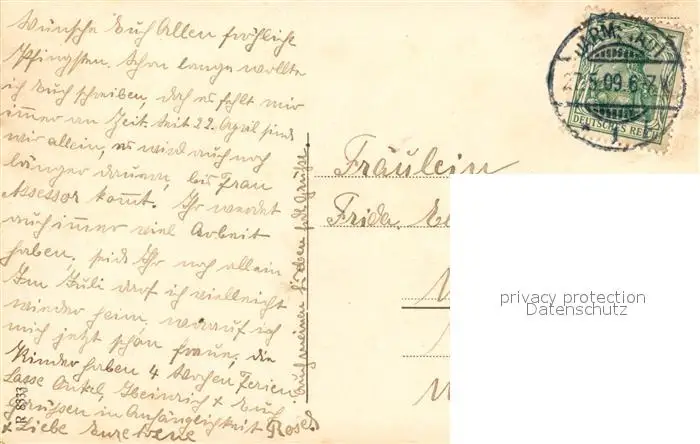 Wünsche Euch Allen fröhliche
Pfingsten. Schon lange wollte
ich Euch schreiben, doch es fehlt mir
immer an Zeit. Seit 22. April sind
wir allein, es wird auch noch
länger dauern, bis Frau
Assessor kommt. Ihr werdet
auch immer viel Arbeit
haben, seid Ihr noch allein
Im Juli darf ich vielleicht
wieder heim, worauf ich
mich jetzt schon freue, die
Kinder haben 4 Wochen Ferien
Lasse Onkel, Heinrich + Euch
Grüssen in Anhänglichkeit
+ Liebe Eure treue Rosel
auch meinen lieben Grüße.
JARMSTADT
27.5.09.6-7
DEUTSCHES REICH
Fräulein
Frida,
privacy protection
Datenschutz
JR 8833